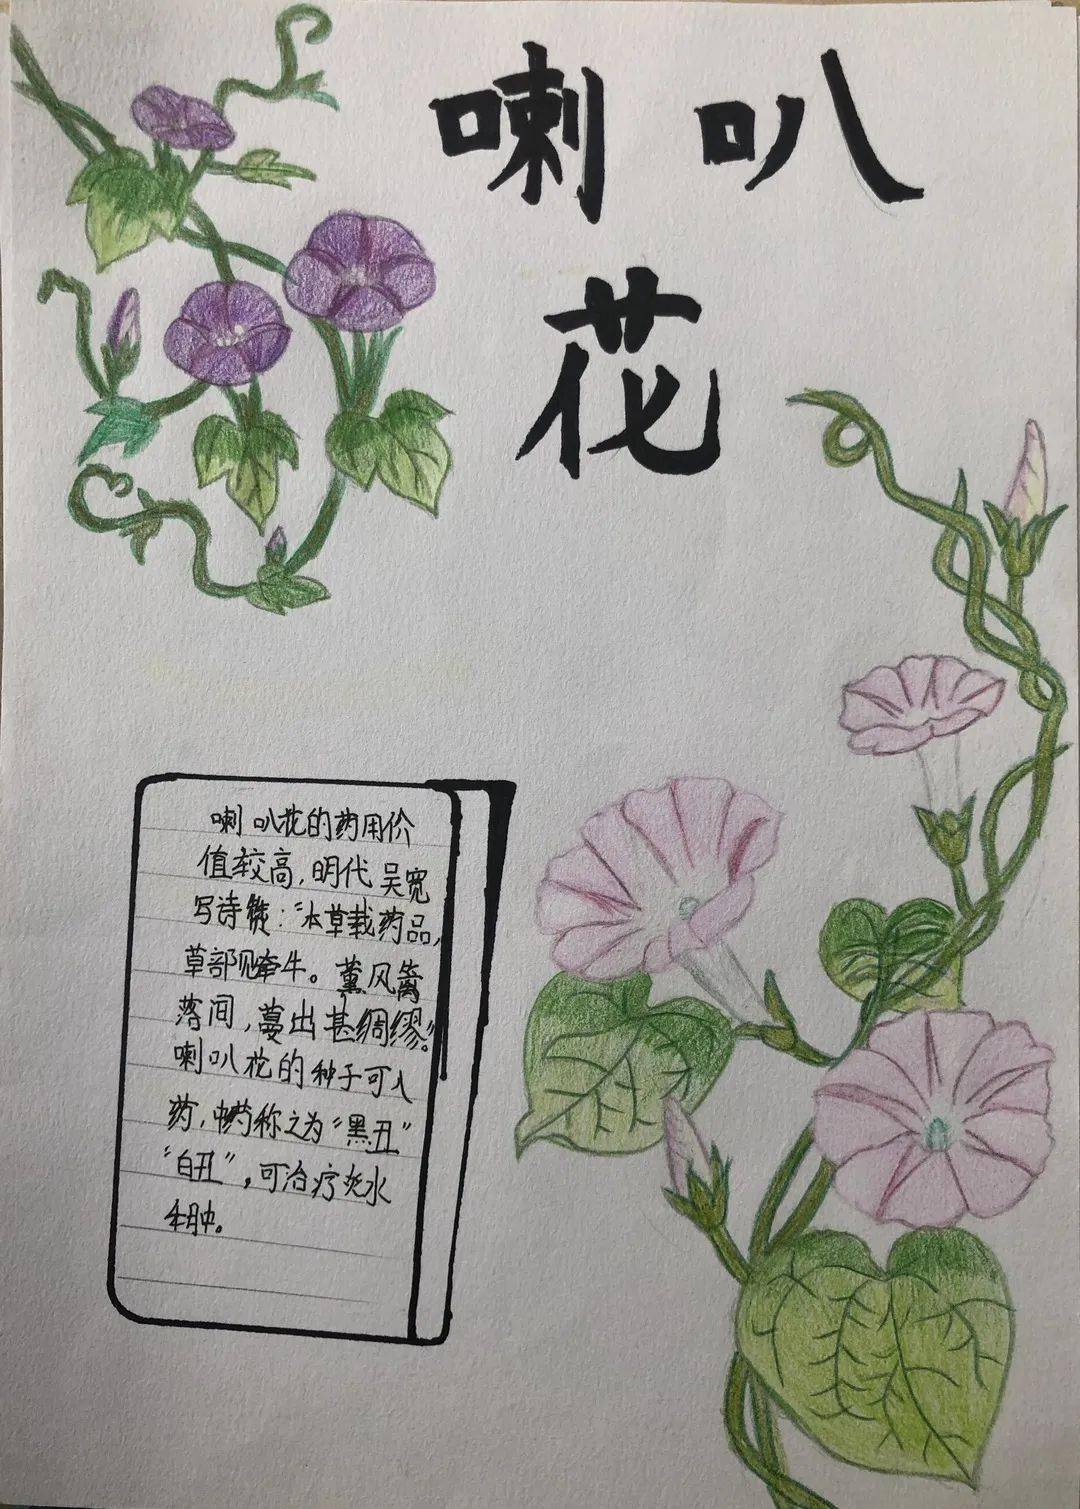 喇叭
花
喇叭花的药用价
值较高,明代吴宽
写诗赞:"本草载药品,
草部见牵牛。薰风篱
落间,蔓出甚绸缪。"
喇叭花的种子可入
药,中药称之为"黑丑"
"白丑",可治疗水
肿。